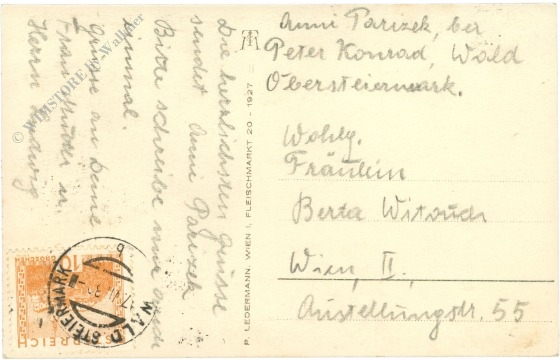 Anni Parizek, bei
Peter Konrad, Wald
Obersteiermark.
Wohlg.
Fräulein
Berta Witouch
Wien, II.,
Austellungstr. 55
Die herzlichsten Grüsse
sendet Anni Parizek
Bitte schreibe mir auch
einmal.
Grüsse an Deine
Frau Mutter u.
Herrn Hedwig
P. LEDERMANN, WIEN I, FLEISCHMARKT 20 - 1927
WALD STEIERMARK
ÖSTERREICH
10